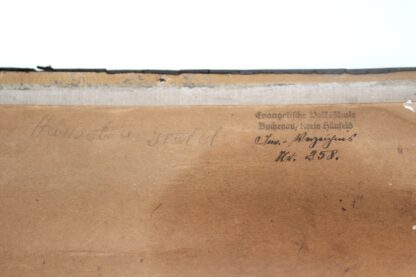 Evangelische Volksschule
Buchenau, Kreis Hünfeld
Inv.-Verzeichnis
Nr. 258.